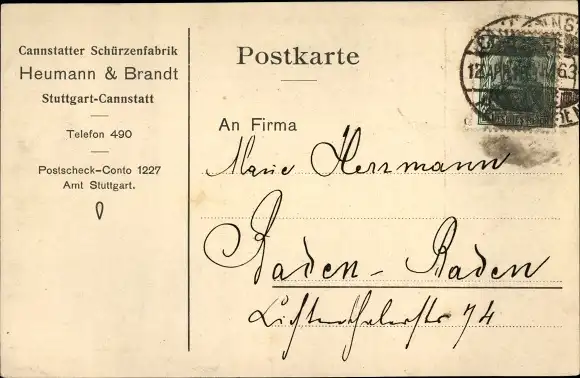 Cannstatter Schürzenfabrik
Heumann & Brandt
Stuttgart-Cannstatt
Telefon 490
Postscheck-Conto 1227
Amt Stuttgart.
Postkarte
An Firma
Marie Herrmann
Baden-Baden
Lichtenthalerstr 74